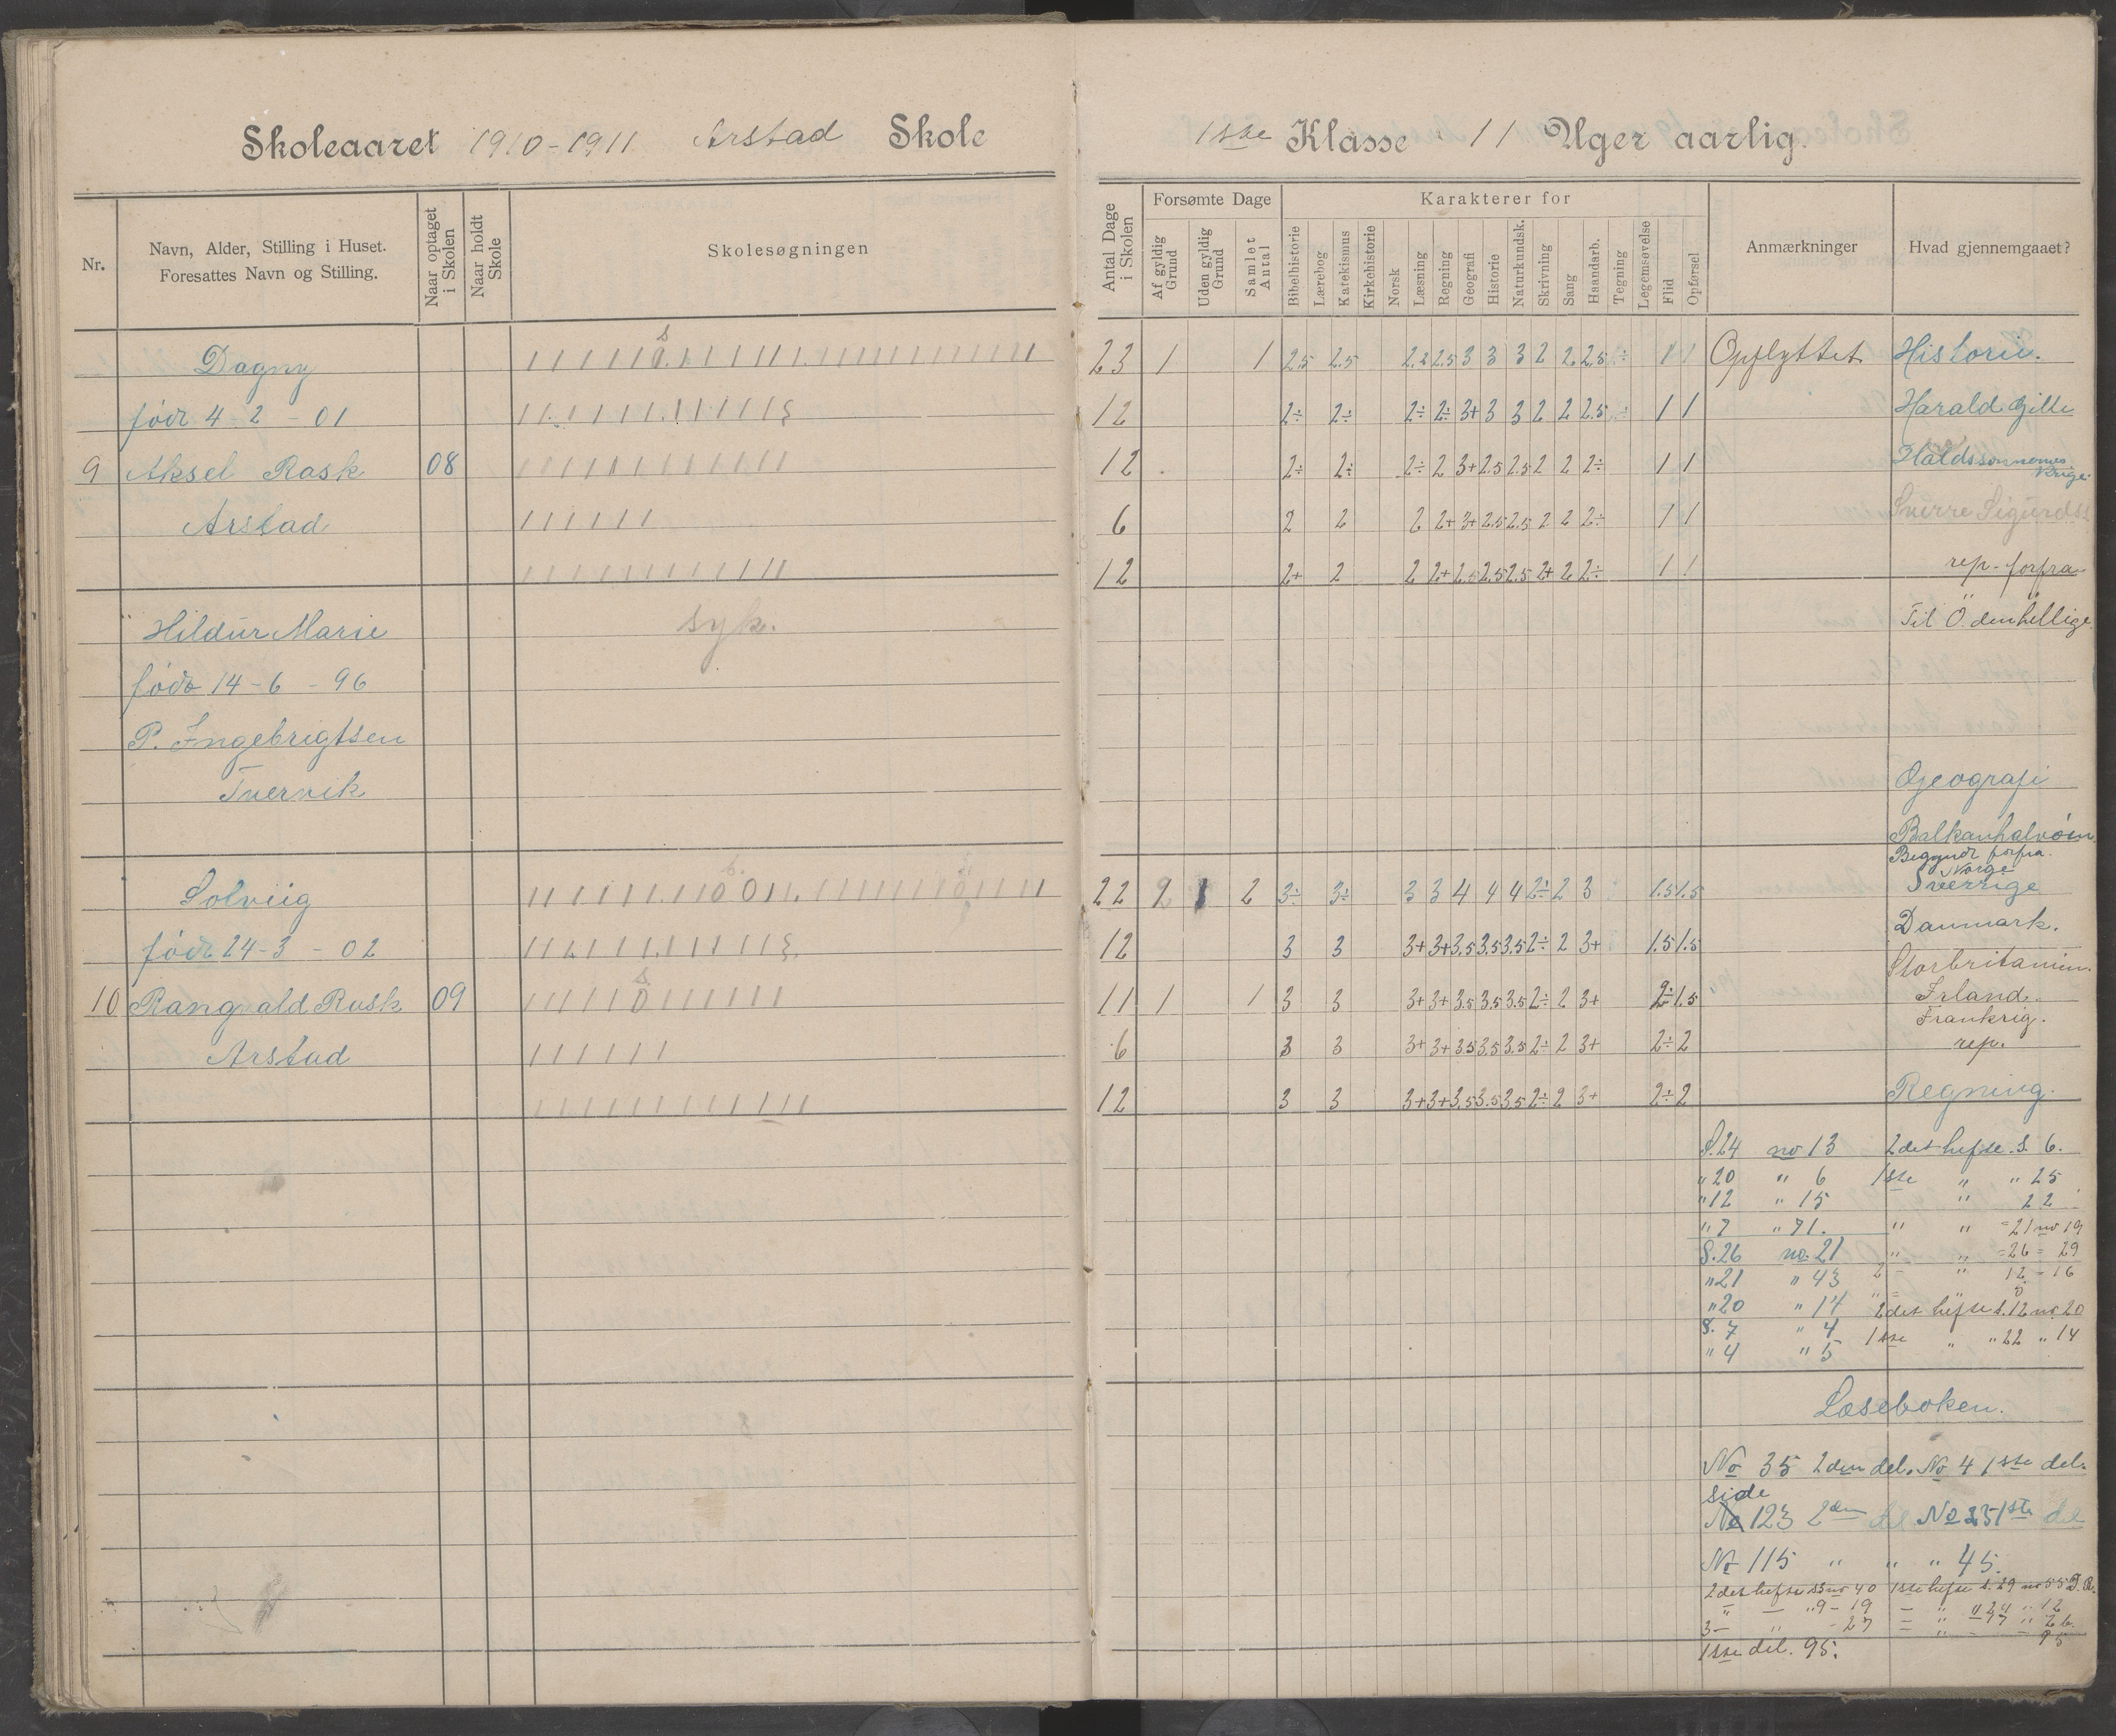 Skoleaaret 1910-1911 Arstad Skole
Nr.
Navn, Alder, Stilling i Huset.
Foresattes Navn og Stilling.
Naar optaget i Skolen
Naar holdt Skole
Skolesøgningen
Dagny
født 4-2-01
9 Aksel Rask 08
Arstad
Hildur Marie syk.
født 14-6-96
P. Ingebrigtsen
Tvervik
Solveig
født 24-3-02
10 Rangvald Rask 09
Arstad
1ste Klasse 11 Uger aarlig.
Antal Dage i Skolen
Forsømte Dage
Af gyldig Grund
Uden gyldig Grund
Samlet Antal
Karakterer for
Bibelhistorie
Lærebog
Katekismus
Kirkehistorie
Norsk
Læsning
Regning
Geografi
Historie
Naturkundsk.
Skrivning
Sang
Haandarb.
Tegning
Legemsøvelse
Flid
Opførsel
Anmærkninger
Hvad gjennemgaaet?
23 1 1 2.5 2.5 2.5 3 3 3 2 2 2.5 1 1 Opflyttet Historie.
12 2÷ 2÷ 2÷ 2÷ 3+ 3 3 2 2 2.5 1 1 Harald Gille
12 2÷ 2÷ 2÷ 2 3+ 2.5 2.5 2 2 2÷ 1 1
6 2 2 2 2+ 3+ 2.5 2.5 2 2 2÷ 1 1 Sverre Sigurdss
12 2+ 2 2 2+ 2.5 2.5 2.5 2+ 2 2÷ 1 1 rep. forfra
Til O. den hellige.
Geografi
Balkanhalvøen
Begyndt forfra.
Norge
22 2 2 3÷ 3÷ 3 3 4 4 4 2÷ 2 3 1.5 1.5 Sverrige
Danmark.
12 3 3 3+ 3+ 3.5 3.5 3.5 2÷ 2 3+ 1.5 1.5
Storbritannien.
11 1 1 3 3 3+ 3+ 3.5 3.5 3.5 2÷ 2 3+ 2÷ 1.5 Irland.
Frankrig.
6 3 3 3+ 3+ 3.5 3.5 3.5 2÷ 2 3+ 2÷ 2 rep.
12 3 3 3+ 3+ 3.5 3.5 3.5 2÷ 2 3+ 2÷ 2 Regning.
S.24 no 13 2det hefte S. 6.
" 20 " 6 1ste " " 25
" 12 " 15 " 22
" 7 " 71. " " = 21 no 19
S.26 no. 21 " " = 26 = 29
" 21 " 43 2 - " 12 - 16
" 20 " 14 2det hefte S.12 no 20
S. 7 " 4 1ste " " 22 " 14
" 4 " 5
Læseboken.
No 35 2den del. No 4 1ste del.
side
No 123 2den del No 25 1ste del
No 115 " " " 45.
2det hefte S 3 no 40 1ste hefte S. 29 no 55 D.R.
" - " 9 - 19 - " " 24 " 12
3 - " - 27
1ste del. 95.